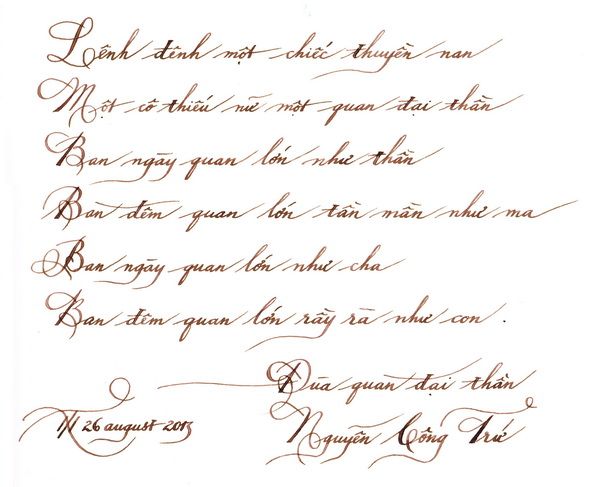 Lênh đênh một chiếc thuyền nan
Một cô thiếu nữ một quan đại thần
Ban ngày quan lớn như thần
Ban đêm quan lớn tần mần như ma
Ban ngày quan lớn như cha
Ban đêm quan lớn rầy rà như con.
Đùa quan đại thần
26 august 2013 Nguyễn Công Trứ